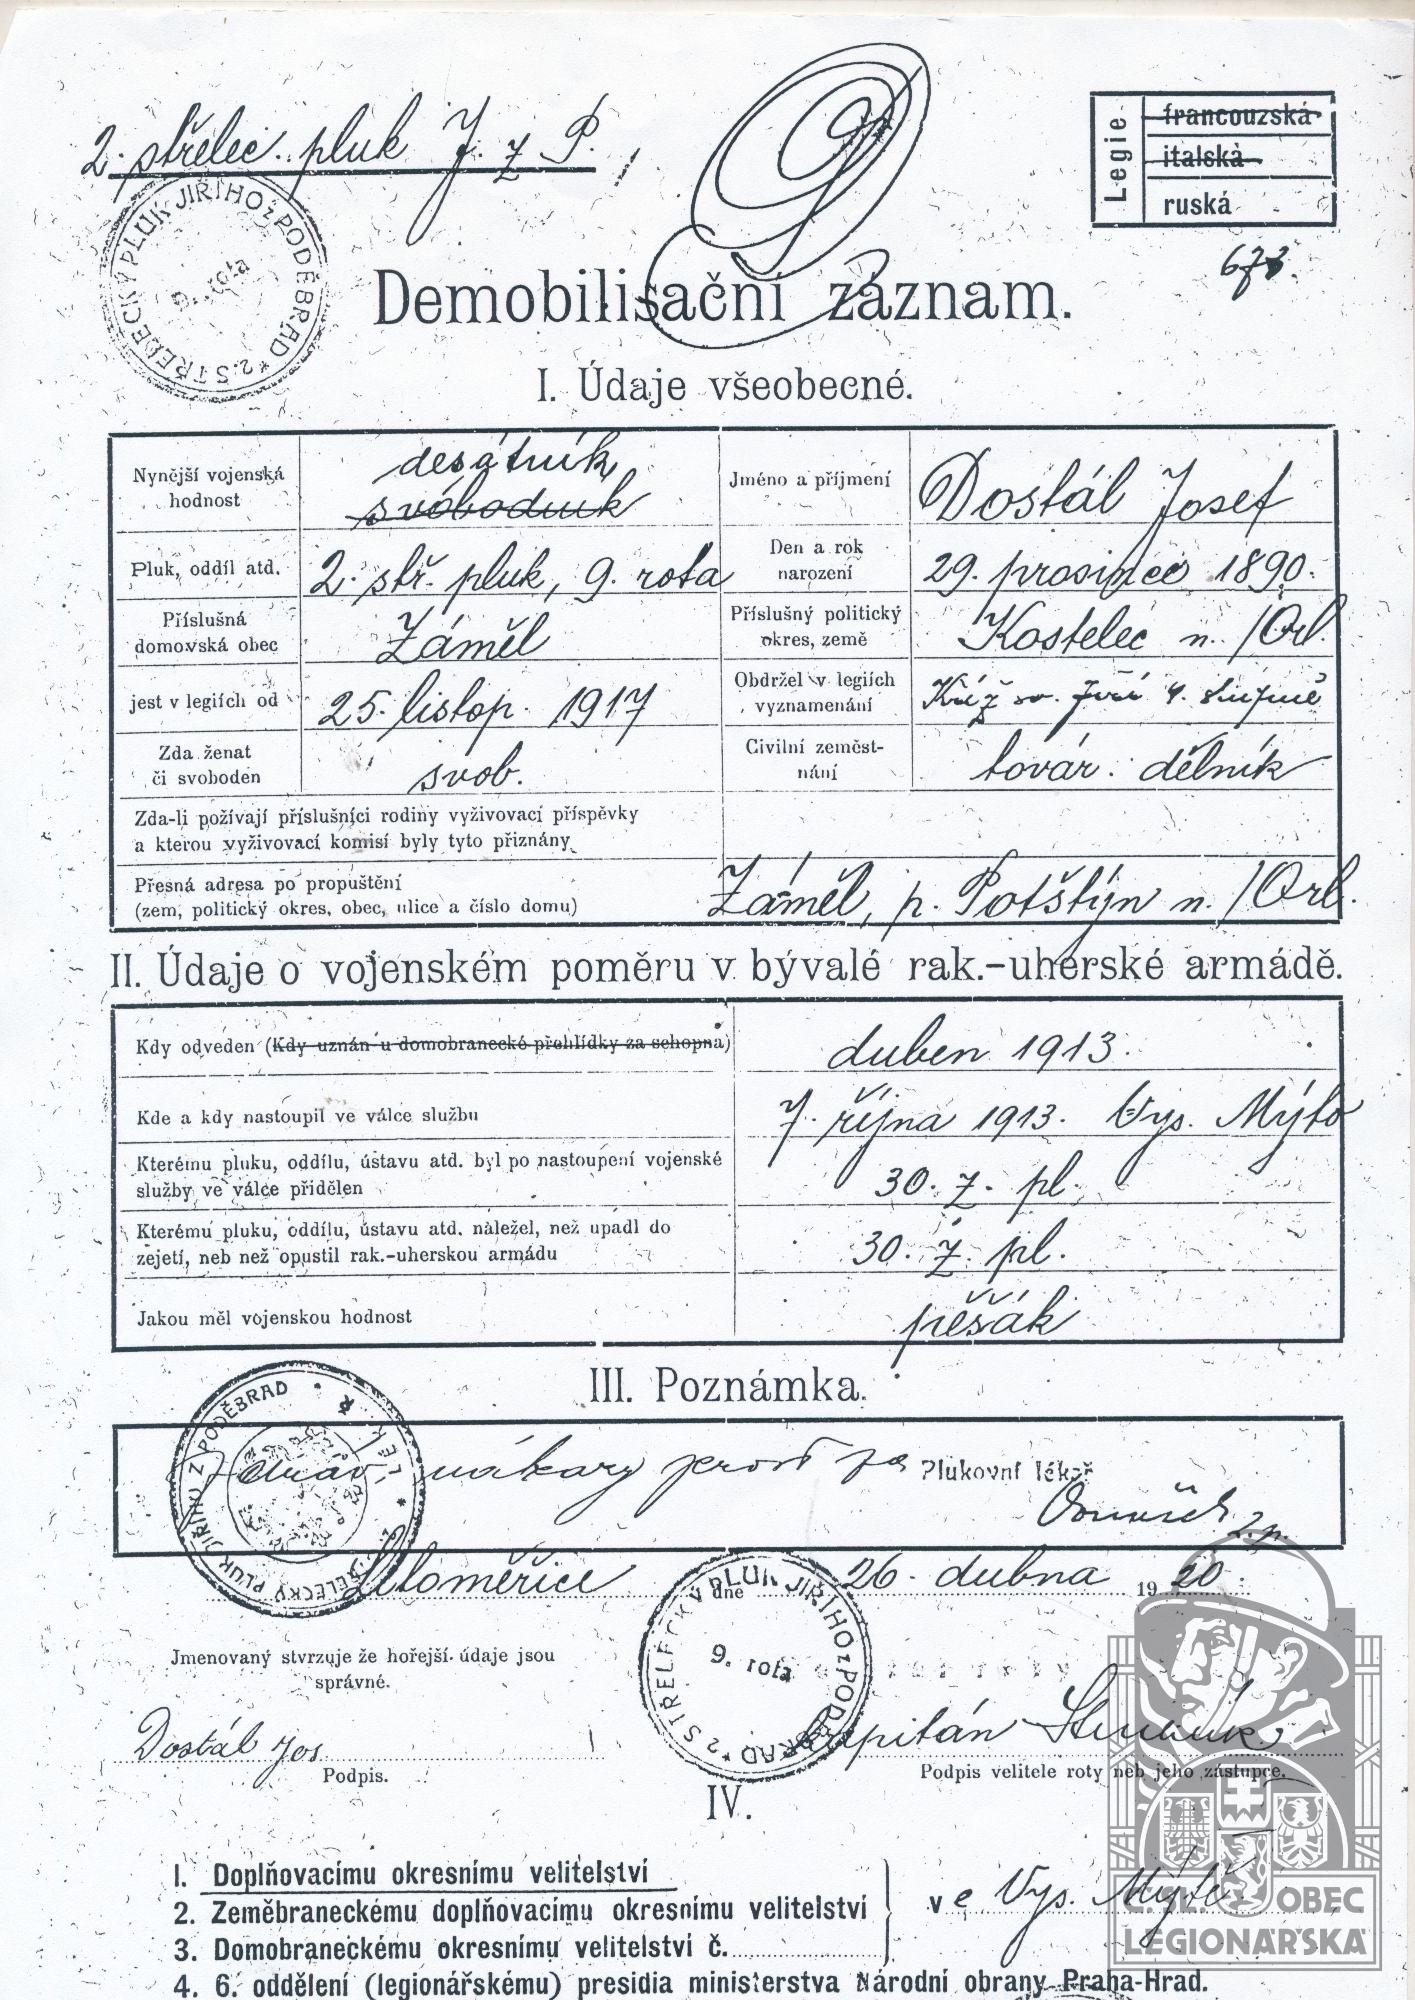 2. střelec. pluk J. z P.
Legie
francouzská
italská
ruská
2. STŘELECKÝ PLUK JIŘÍHO z PODĚBRAD *
9. rota
Demobilisační záznam.
I. Údaje všeobecné.
Nynější vojenská hodnost
desátník
svobodník
Jméno a příjmení
Dostál Josef
Pluk, oddíl atd.
2. stř. pluk, 9. rota
Den a rok narození
29. prosince 1890.
Příslušná domovská obec
Záměl
Příslušný politický okres, země
Kostelec n./Orl.
jest v legiích od
25. listop. 1917
Obdržel v legiích vyznamenání
Kříž sv. Jiří 4. stupně
Zda ženat či svoboden
svob.
Civilní zeměst-
nání
továr. dělník
Zda-li požívají příslušníci rodiny vyživovací příspěvky
a kterou vyživovací komisí byly tyto přiznány
Přesná adresa po propuštění
(zem, politický okres, obec, ulice a číslo domu)
Záměl, p. Potštýn n./Orl.
II. Údaje o vojenském poměru v bývalé rak.-uherské armádě.
Kdy odveden (Kdy uznán u domobranecké přehlídky za schopna)
duben 1913.
Kde a kdy nastoupil ve válce službu
7. října 1913. Vys. Mýto
Kterému pluku, oddílu, ústavu atd. byl po nastoupení vojenské
služby ve válce přidělen
30. z. pl.
Kterému pluku, oddílu, ústavu atd. náležel, než upadl do
zejetí, neb než opustil rak.-uherskou armádu
30. z. pl.
Jakou měl vojenskou hodnost
pěšák
III. Poznámka.
Zdráv, nákazy prost
Plukovní lékař
Litoměřice dne 26. dubna 1920.
2. STŘELECKÝ PLUK JIŘÍHO z PODĚBRAD *
9. rota
Jmenovaný stvrzuje že hořejší údaje jsou
správné.
Dostál Jos.
Podpis.
kapitán
Podpis velitele roty neb jeho zástupce.
IV.
1. Doplňovacímu okresnímu velitelství
2. Zeměbraneckému doplňovacímu okresnímu velitelství
3. Domobraneckému okresnímu velitelství č.
ve Vys. Mýtě
4. 6. oddělení (legionářskému) presidia ministerstva Národní obrany Praha-Hrad.
Č. SL. OBEC
LEGIONÁŘSKÁ